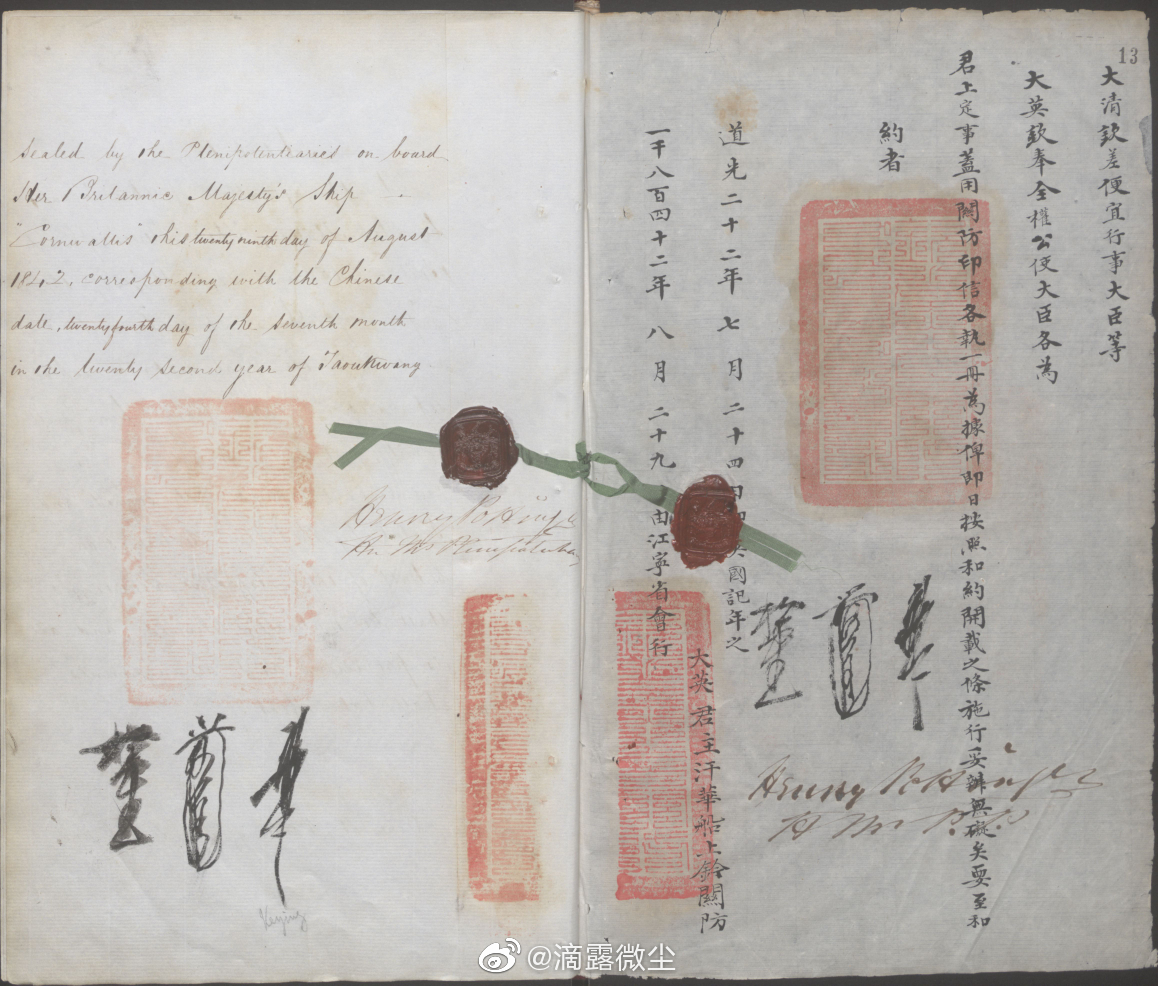 Sealed by the Plenipotentiaries on board
Her Britannic Majesty's Ship
"Cornwallis" this twenty ninth day of August
1842, corresponding with the Chinese
date, twenty fourth day of the seventh month
in the twenty second year of Taoukwang
Henry Pottinger
Keying
13
大清欽差便宜行事大臣等
大英欽奉全權公使大臣各為
君上定事蓋用關防印信各執一冊為據俾即日按照和約開載之條施行妥辦無礙矣要至和
約者
道光二十二年七月二十四日即英國記年之
一千八百四十二年八月二十九日由江寧省會行
大英君主汗華船上鈐關防
Henry Pottinger
@滴露微尘